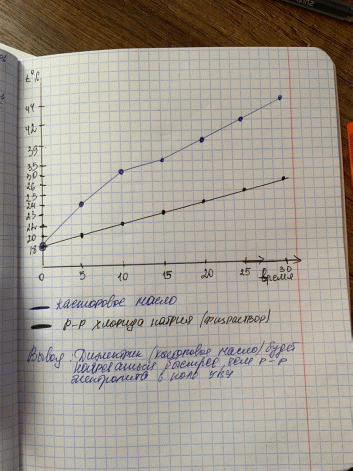 t°C
44
42
39
35
30
26
25
24
23
22
20
18
0 5 10 15 20 25 30
время
касторовое масло
р-р хлорида натрия (физраствор)
Вывод: Диэлектрик (касторовое масло) будет
нагреваться быстрее, чем р-р
электролита в поле УВЧ